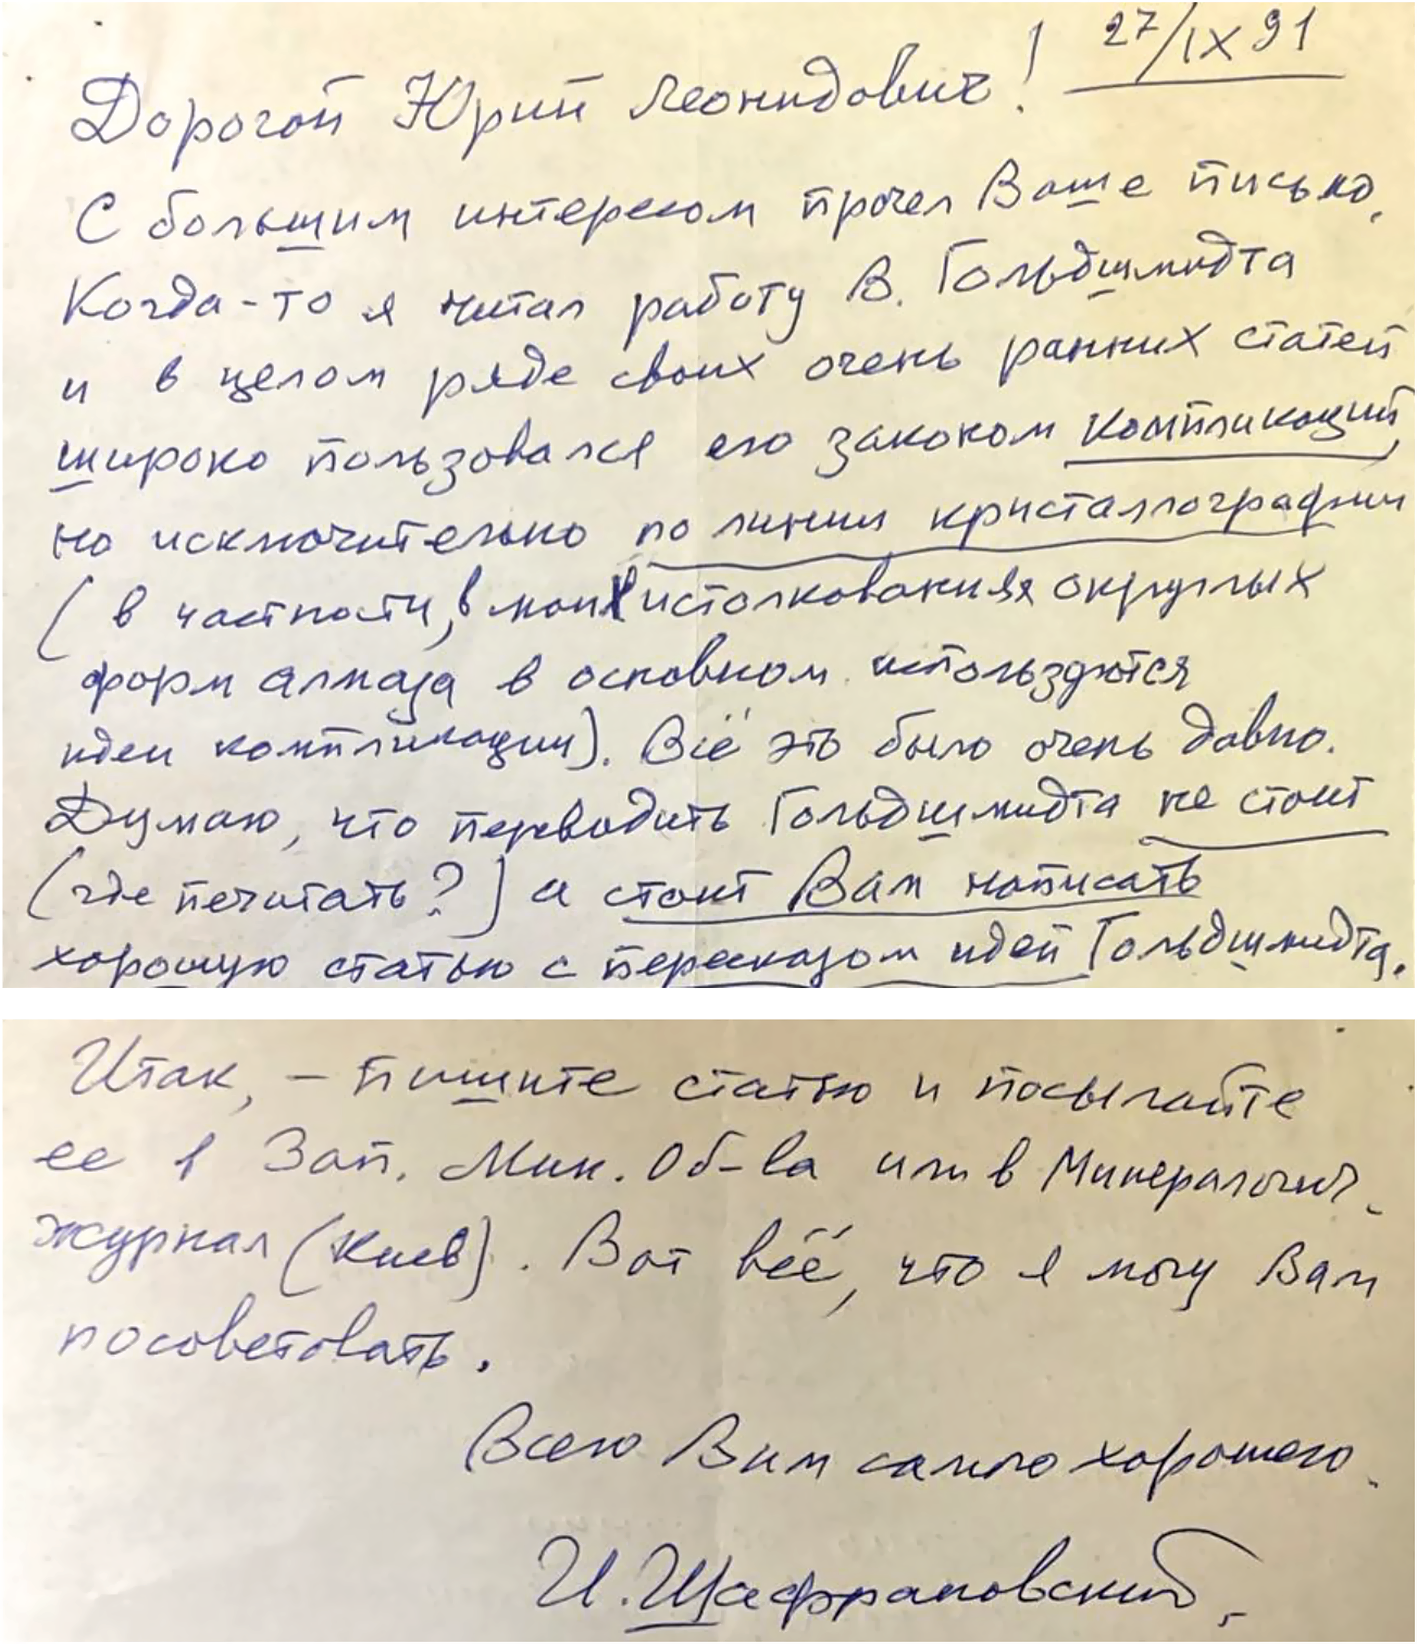 27/IX 91
Дорогой Юрий Леонидович!
С большим интересом прочел Ваше письмо.
Когда-то я читал работу В. Гольдшмидта
и в целом ряде своих очень ранних статей
широко пользовался его законом компликаций,
но исключительно по линии кристаллографии
(в частности, в моих истолкованиях округлых
форм алмаза в основном используются
идеи компликации). Всё это было очень давно.
Думаю, что переводить Гольдшмидта не стоит
(где печатать?) а стоит Вам написать
хорошую статью с пересказом идей Гольдшмидта.
Итак, – пишите статью и посылайте
ее в Зап. Мин. Об-ва или в Минералогич.
журнал (Киев). Вот всё, что я могу Вам
посоветовать.
Всего Вам самого хорошего.
И. Шафрановский.